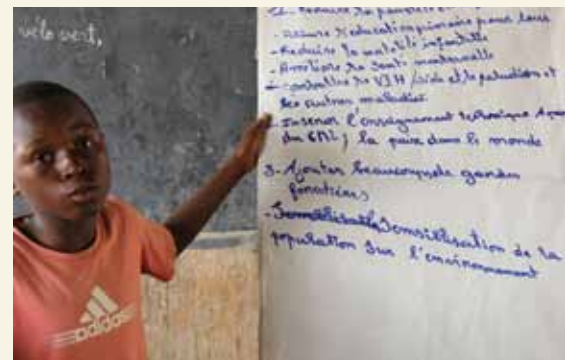 vélo vert,
1- Réduire la pauvreté
- Assure l'éducation primaire pour tous
- Réduire la mortalité infantile
- Améliore la santé maternelle
contrôller le VIH/sida et le paludisme et
les autres maladies
Insener l'enseignement technique
du CM2; la paix dans le monde
3- Ajouter beaucoup de gardes
forestiers
- Sensibilisation de la
population sur l'environnement
adidas